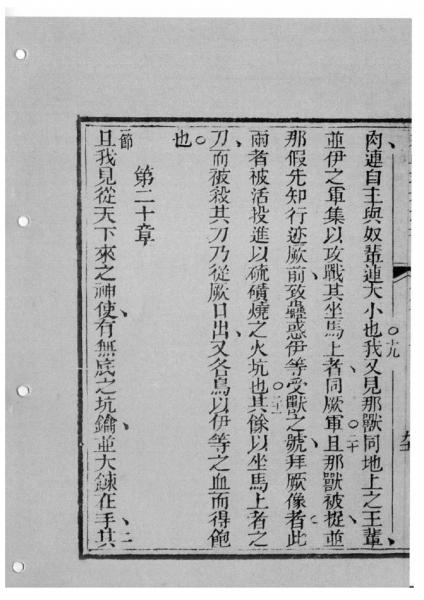 肉連自主與奴輩連大小也。十九我又見那獸同地上之王輩、
並伊之軍集以攻戰其坐馬上者、同厥軍。二十且那獸被捉、並
那假先知行迹厥前致蠱惑伊等受獸之號、拜厥像者、此
兩者被活投進以硫磺燒之火坑也。二一其餘以坐馬上者之
刀而被殺、其刀乃從厥口出、又各鳥以伊等之血而得飽
也。
第二十章
一節且我見從天下來之神使、有無底之坑鑰、並大鍊在手、二其